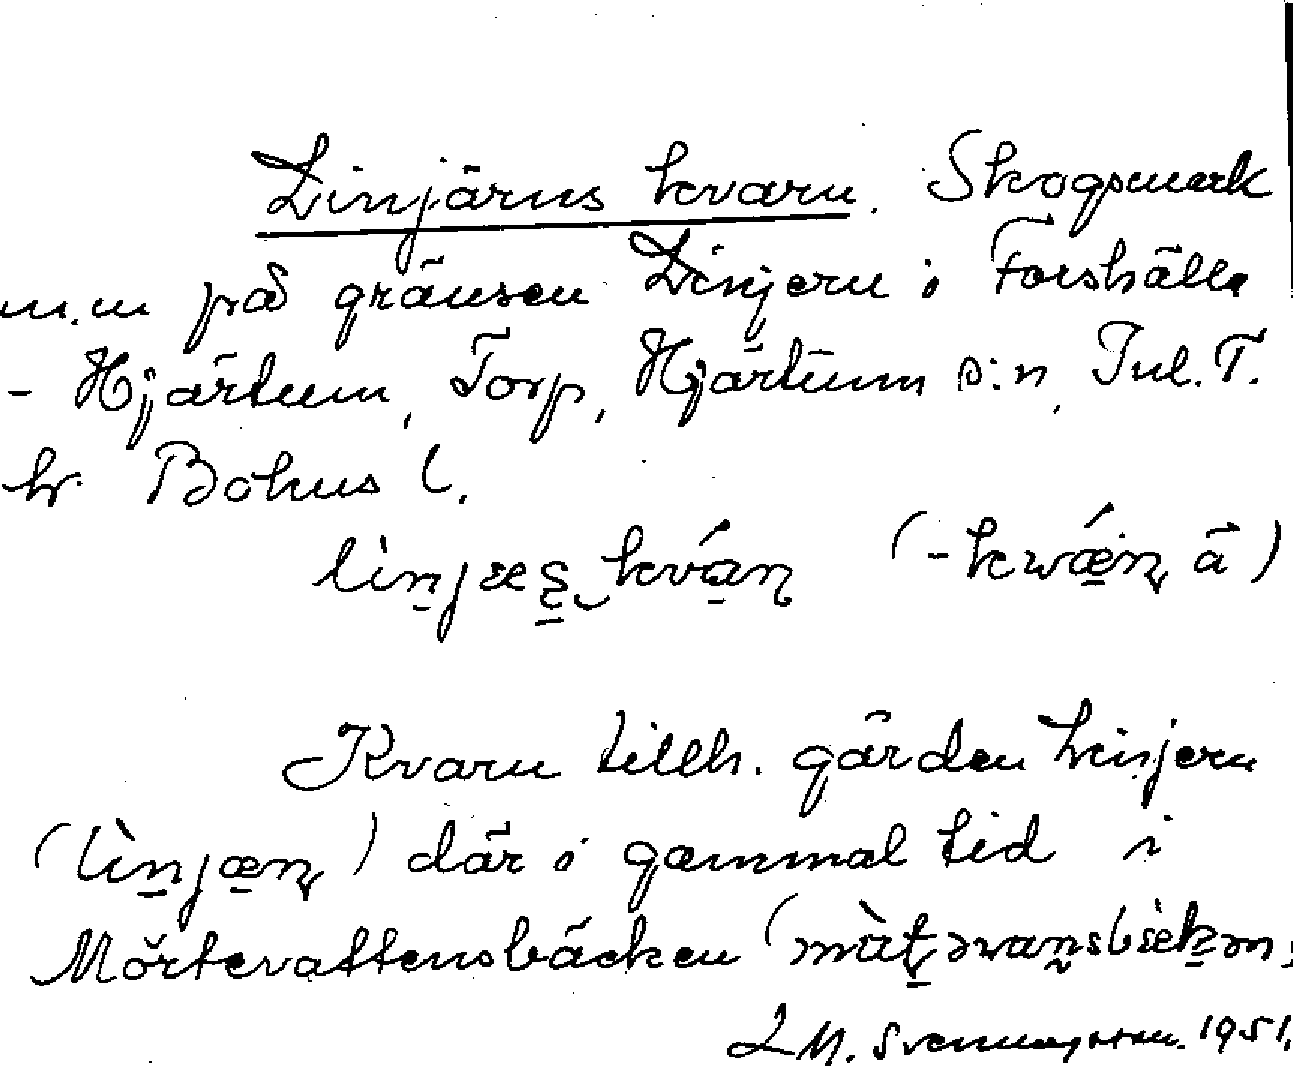 Linjärns kvarn. Skogsmark
m.m på gränsen Linjern i Forshälla
- Hjärtum, Torp, Hjärtum s:n, Inl. T.
hr Bohus l.
lìnjæʂ kván (-kwǽɳ ā)
Kvarn tillh. gården Linjern
(lìnjæɳ) där i gammal tid i
Mörtevattensbäcken (
L M. Svenungsson. 1951.